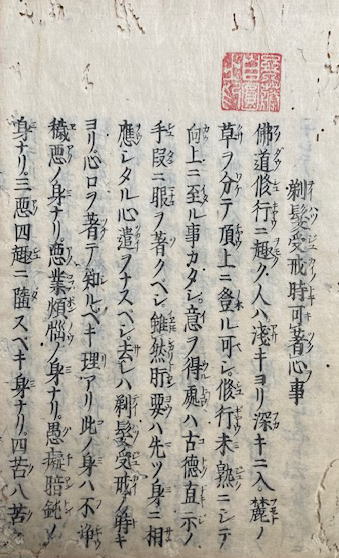 剃髮受戒時可著心事
佛道修行ニ趣ク人ハ淺キヨリ深キニ入。麓ノ
草ヲ分テ頂上ニ登ル可シ。修行未熟ニシテ
向上ニ至ル事カタシ。意ヲ得處ハ古德直示ノ
手段ニ眼ヲ著クベシ。雖然肝要ハ先ツ身ニ相
應シタル心遣ヲナスベシ。去レハ剃髮受戒ノ時キ
ヨリ心ロヲ著テ知ルベキ理アリ此ノ身ハ不淨
穢惡ノ身ナリ。惡業煩惱ノ身ナリ。愚癡暗鈍ノ
身ナリ。三惡四趣ニ墮スベキ身ナリ。四苦八苦